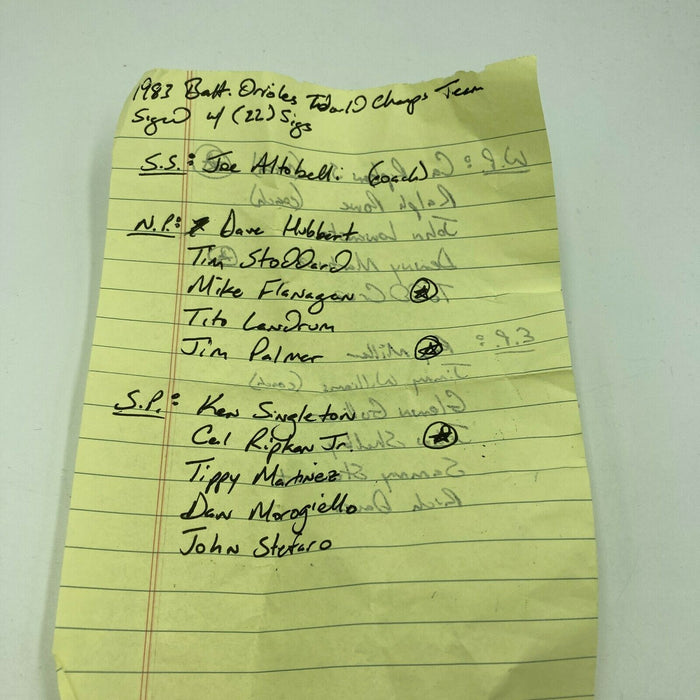 1983 Balt. Orioles World Champs Team
Signed w/ (22) Sigs
S.S.: Joe Altobelli (coach)
N.P.: Dave Hubbert
Tim Stoddard
Mike Flanagan ★
Tito Landrum
Jim Palmer ★
S.P.: Ken Singleton
Cal Ripken Jr. ★
Tippy Martinez
Dan Morogiello
John Stefaro